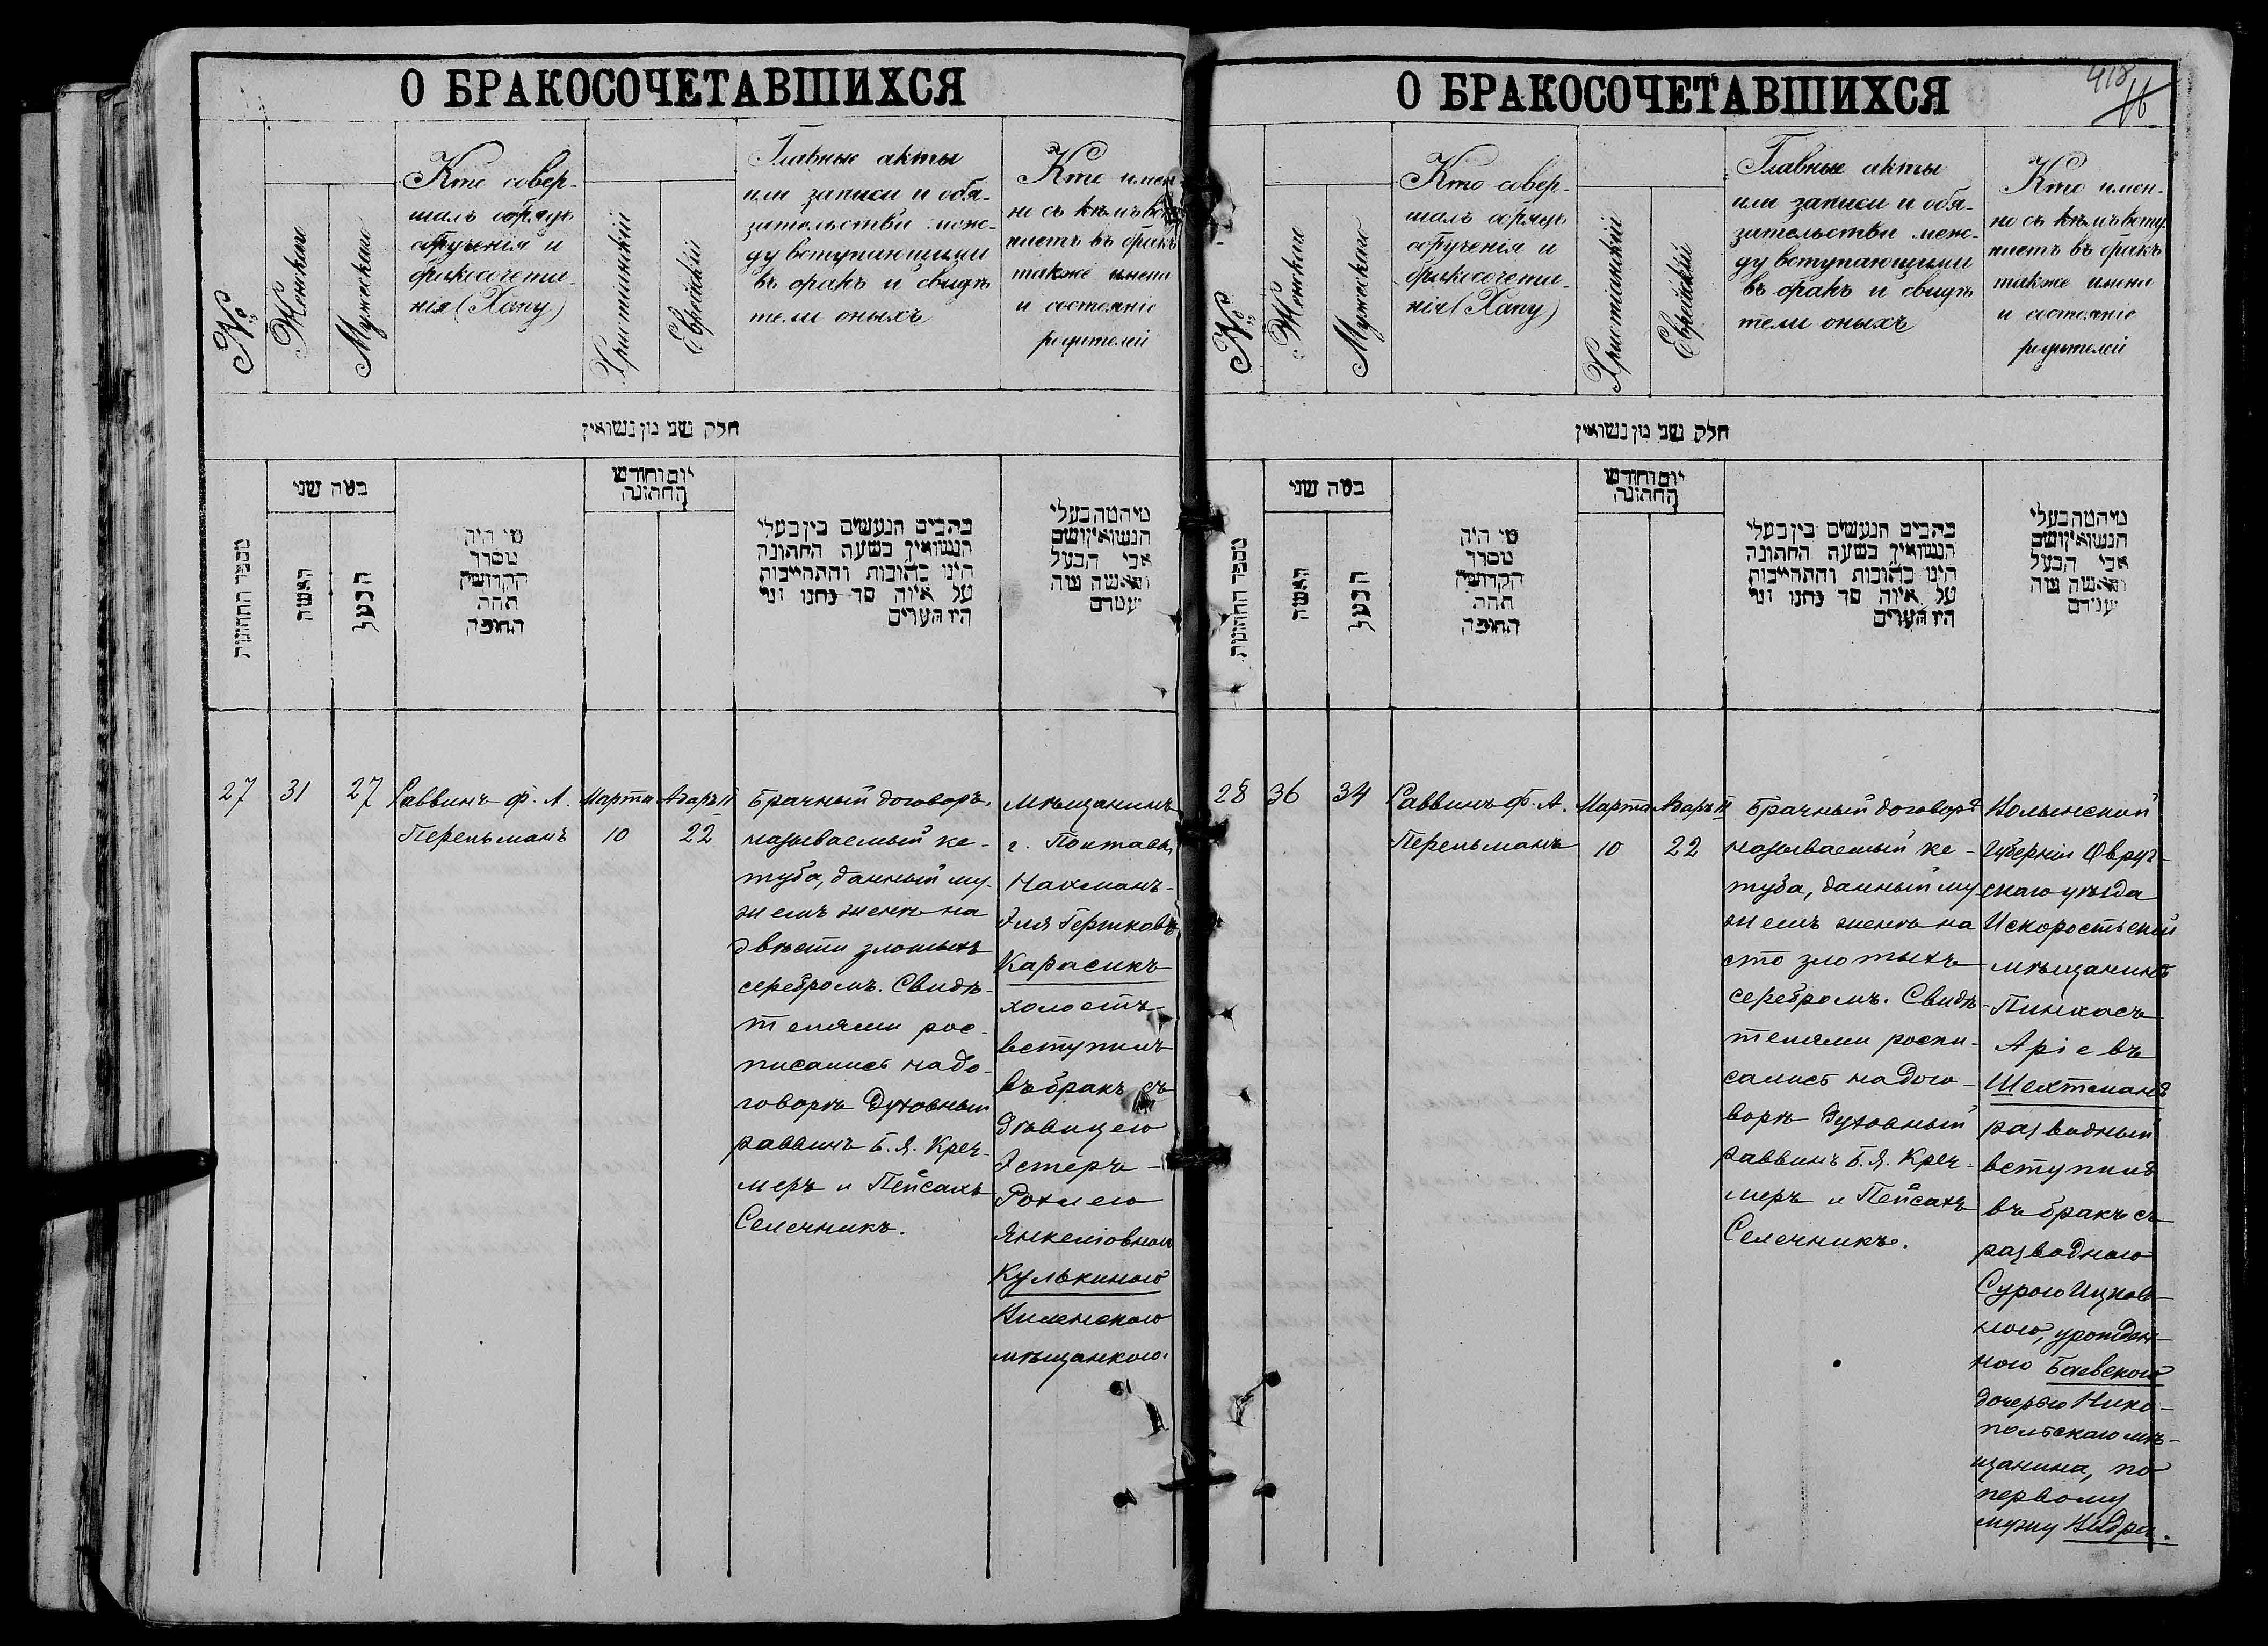 О БРАКОСОЧЕТАВШИХСЯ
№
Женскаго
Мужскаго
Кто совер-
шалъ обрядъ
обрученія и
бракосочета-
нія (Хупу)
Христіанскій
Еврейскій
Главные акты
или записи и обя-
зательства меж-
ду вступающими
въ бракъ и свидѣ
тели оныхъ
Кто имен-
но съ кѣмъ всту
паетъ въ бракъ
также имена
и состояніе
родителей
חלק שני מן נשואין
מספר החתונות
כמה שני
האשה
הבעל
מי היה
מסדר
הקדושין
תחת
החופה
יום וחודש
החתונה
כתבים הנעשים בין בעלי
הנשואין בשעת החתונה
היינו כתובות והתחייבות
על איזה סך נתנו ומי
היו העדים
מי המה בעלי
הנשואין ושם
אבי הבעל
והאשה ומה
מעמדם
27
31
27
Раввинъ Ф. А.
Перельманъ
Марта
10
Адаръ II
22
Брачный договоръ,
называемый ке-
туба, данный му-
жемъ женѣ на
двѣсти злотыхъ
серебромъ. Свидѣ-
телями рос-
писались на до-
говорѣ Духовный
раввинъ Б. Я. Креч-
меръ и Пейсахъ
Селечникъ.
Мѣщанинъ
г. Полтавы,
Нахманъ-
Эля Гершковъ
Карасикъ
холостъ
вступилъ
въ бракъ съ
дѣвицею
Эстеръ-
Рохлею
Янкелювною
Кулькиною
Виленскою
мѣщанкою.
О БРАКОСОЧЕТАВШИХСЯ
418
16
№
Женскаго
Мужскаго
Кто совер-
шалъ обрядъ
обрученія и
бракосочета-
нія (Хупу)
Христіанскій
Еврейскій
Главные акты
или записи и обя-
зательства меж-
ду вступающими
въ бракъ и свидѣ
тели оныхъ
Кто имен-
но съ кѣмъ всту
паетъ въ бракъ
также имена
и состояніе
родителей
חלק שני מן נשואין
מספר החתונות
כמה שני
האשה
הבעל
מי היה
מסדר
הקדושין
תחת
החופה
יום וחודש
החתונה
כתבים הנעשים בין בעלי
הנשואין בשעת החתונה
היינו כתובות והתחייבות
על איזה סך נתנו ומי
היו העדים
מי המה בעלי
הנשואין ושם
אבי הבעל
והאשה ומה
מעמדם
28
36
34
Раввинъ Ф. А.
Перельманъ
Марта
10
Адаръ II
22
Брачный договоръ
называемый ке-
туба, данный му-
жемъ женѣ на
сто злотыхъ
серебромъ. Свидѣ-
телями роспи-
сались на дого-
ворѣ Духовный
раввинъ Б. Я. Креч-
меръ и Пейсахъ
Селечникъ.
Волынской
губерніи Овруч-
скаго уѣзда
Искоростьскій
мѣщанинъ
Пинхасъ
Аріевъ
Шехтманъ
разводный
вступилъ
въ бракъ съ
разводною
Сурою Ицков-
ною, урожден-
ною Баевскою
дочерью Нико-
польскаго мѣ-
щанина, по
первому
мужу